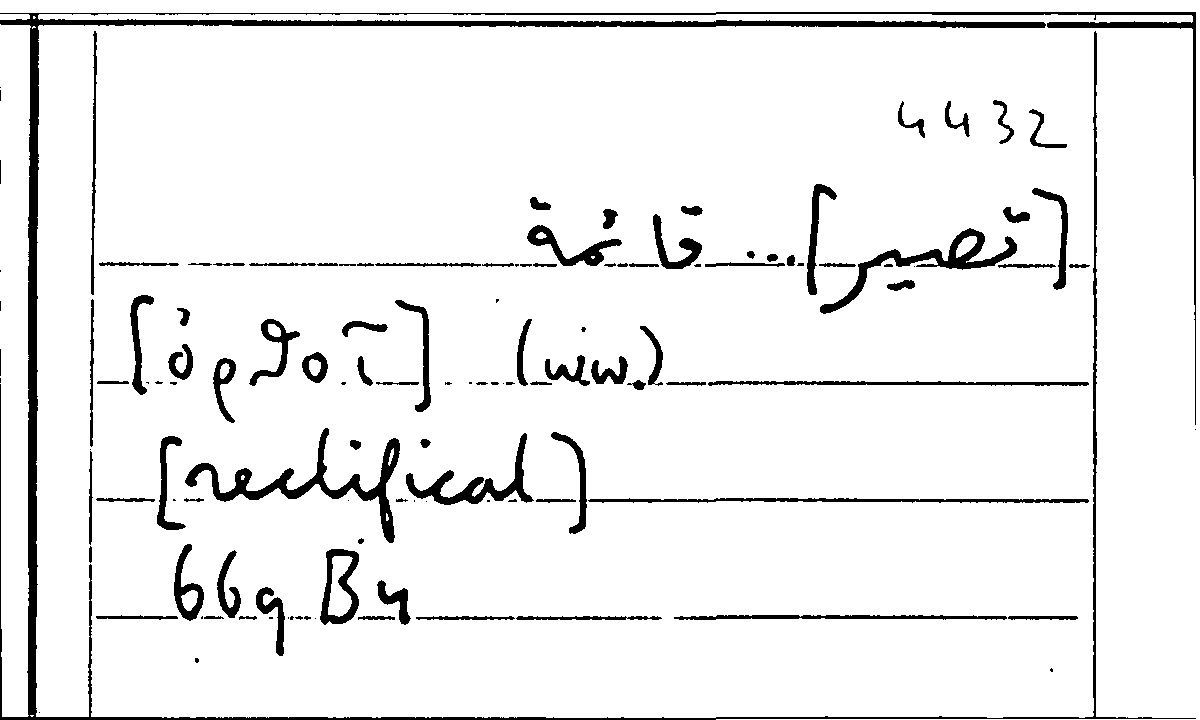 4432
[تصير] ... قائمة
[ὀρθοῖ] (ww.)
[rectificat]
669 B4